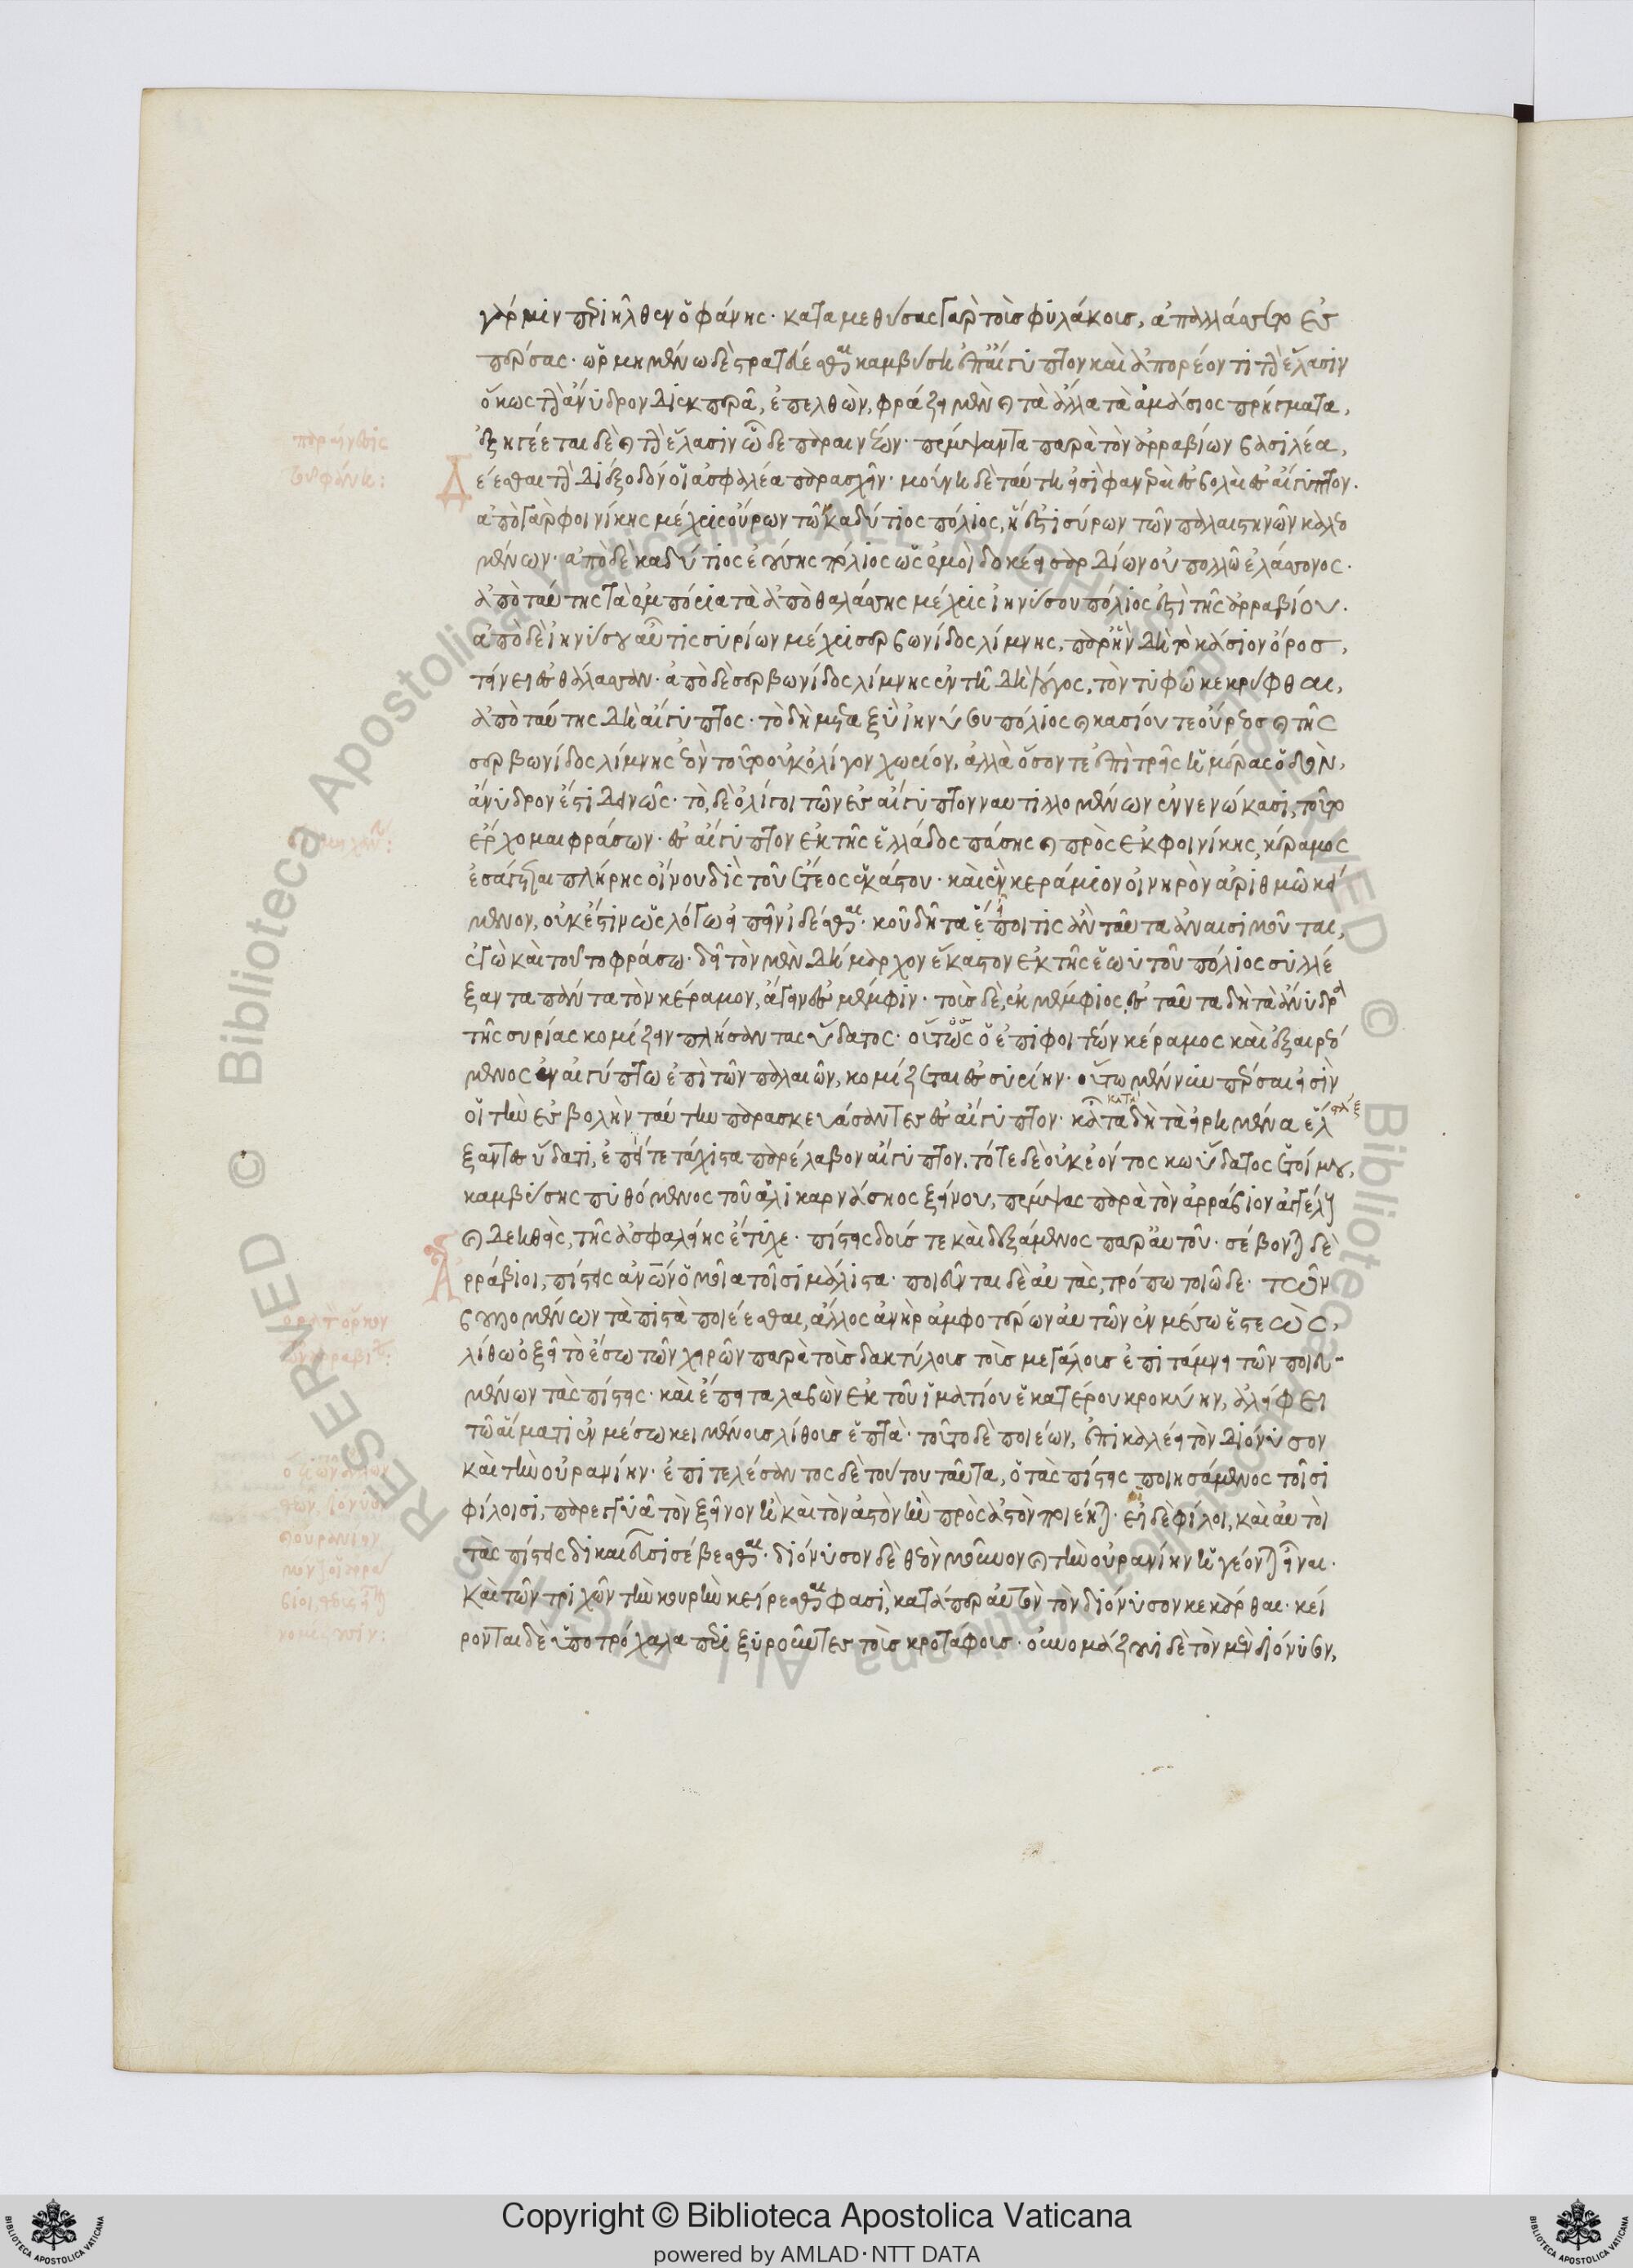 γάρ μιν περιῆλθεν ὁ φάνης· καταμεθύσας γὰρ τοὺς φυλάκους, ἀπαλλάσσετο ἐς
πέρσας· ὡρμημένω δὲ στρατεύεσθαι καμβύση ἐπ' αἴγυπτον καὶ ἀπορέοντι τὴν ἔλασιν
ὅκως τὴν ἄνυδρον διεκπερᾶ, ἐπελθὼν, φράζει μὲν καὶ τὰ ἄλλα τὰ ἀμάσιος πρήγματα,
ἐξηγέεται δὲ καὶ τὴν ἔλασιν ὧδε παραινέων· πέμψαντα παρὰ τὸν ἀρραβίων βασιλέα,
δέεσθαι τὴν διέξοδόν οἱ ἀσφαλέα παρασχεῖν· μούνη δὲ ταύτη εἰσὶ φανεραὶ ἐσβολαὶ ἐς αἴγυπτον·
ἀπὸ γὰρ φοινίκης μέχρις οὔρων τῶν καδύτιος πόλιος, ἥ ἐστι σύρων τῶν παλαιστηνῶν καλεο
μένων· ἀπὸ δὲ καδύτιος ἐούσης πόλιος ὡς ἐμοὶ δοκέει σαρδίων οὐ πολλῶ ἐλάσσονος·
ἀπὸ ταύτης τὰ ἐμπόρια τὰ ἀπὸ θαλάσσης μέχρις ἰηνύσου πόλιος ἐστὶ τῆς ἀρραβίου·
ἀπὸ δὲ ἰηνύσου αὖτις συρίων μέχρι σερβωνίδος λίμνης, παρ' ἣν δὴ τὸ κάσιον ὄρος,
τείνει ἐς θάλασσαν· ἀπὸ δὲ σερβωνίδος λίμνης ἐν τῆ δὴ λόγος, τὸν τυφῶ κεκρύφθαι,
ἀπὸ ταύτης δὴ αἴγυπτος· τὸ δὴ μεταξὺ ἰηνύσου πόλιος καὶ κασίου τε οὔρεος καὶ τῆς
σερβωνίδος λίμνης ἐὸν τοῦτο οὐκ ὀλίγον χωρίον, ἀλλὰ ὅσον τε ἐπὶ τρεῖς ἡμέρας ὁδὸν,
ἄνυδρον ἐστὶ δεινῶς· τὸ, δὲ ὀλίγοι τῶν ἐς αἴγυπτον ναυτιλλομένων ἐννενώκασι, τοῦτο
ἔρχομαι φράσων· ἐς αἴγυπτον ἐκ τῆς ἑλλάδος πάσης καὶ πρὸς ἐκ φοινίκης, κέραμος
ἐσάγεται πλήρης οἴνου δὶς τοῦ ἔτεος ἑκάστου· καὶ ἓν κεράμιον οἰνηρὸν ἀριθμῶ κεί
μενον, οὐκ ἔστιν ὡς λόγω εἰπεῖν ἰδέσθαι· κοῦ δῆτα εἴποι τις ἂν ταῦτα ἀναισιμοῦται,
ἐγὼ καὶ τοῦτο φράσω· δεῖ τὸν μὲν δήμαρχον ἕκαστον ἐκ τῆς ἑωυτοῦ πόλιος συλλέ
ξαντα πάντα τὸν κέραμον, ἄγειν ἐς μέμφιν· τοὺς δὲ, ἐκ μέμφιος, ἐς ταῦτα δὴ τὰ ἄνυδρα
τῆς συρίας κομίζειν πλήσαντας ὕδατος· οὕτως ὁ ἐπιφοιτέων κέραμος καὶ ἐξαιρεό
μενος ἐν αἰγύπτω ἐπὶ τῶν παλαιῶν, κομίζεται ἐς συρίην· οὕτω μέν νιν πέρσαι εἰσὶν
οἱ τὴν ἐσβολὴν ταύτην παρασκευάσαντες ἐς αἴγυπτον· κατὰ δὴ τὰ εἰρημένα
ξαντες ὕδατι, ἐπεί τε τάχιστα παρέλαβον αἴγυπτον, τότε δὲ οὐκ ἐόντος κω ὕδατος ἑτοίμου,
καμβύσης πυθόμενος τοῦ ἁλικαρνάσηος ξείνου, πέμψας παρὰ τὸν ἀρράβιον ἀγγέλους
καὶ δεηθεὶς, τῆς ἀσφαλείης ἔτυχε· πίστεις δούς τε καὶ δεξάμενος παρ' αὐτοῦ· σέβονται δὲ
ἀρράβιοι, πίστεις ἀνθρώπων ὅμοια τοῖσι μάλιστα· ποιεῦνται δὲ αὐτὰς, τρόπω τοιῶδε· τῶν
βουλομένων τὰ πιστὰ ποιέεσθαι, ἄλλος ἀνὴρ ἀμφοτέρων αὐτῶν ἐν μέσω ἑστεὼς,
λίθω ὀξεῖ τὸ ἔσω τῶν χειρῶν παρὰ τοὺς δακτύλους τοὺς μεγάλους ἐπιτάμνει τῶν ποιευ-
μένων τὰς πίστεις· καὶ ἔπειτα λαβὼν ἐκ τοῦ ἱματίου ἑκατέρου κροκύην, ἀλείφει
τῶ αἵματι ἐν μέσω κειμένους λίθους ἑπτὰ· τοῦτο δὲ ποιέων, ἐπικαλέει τὸν διόνυσον
καὶ τὴν οὐρανίην· ἐπιτελέσαντος δὲ τούτου ταῦτα, ὁ τὰς πίστεις ποιησάμενος τοῖσι
φίλοισι, παρεγγυᾶ τὸν ξεῖνον ἢ καὶ τὸν ἀστὸν ἢν πρὸς ἀστὸν ποιέηται· οἱ δὲ φίλοι, καὶ αὐτοὶ
τὰς πίστεις δικαιεῦσι σέβεσθαι· διόνυσον δὲ θεὸν μοῦνον καὶ τὴν οὐρανίην ἡγέονται εἶναι·
καὶ τῶν τριχῶν τὴν κουρὴν κείρεσθαι φασὶ, κατάπερ αὐτὸν τὸν διόνυσον κεκάρθαι· κεί
ρονται δὲ ὑποτρόχαλα περιξυροῦντες τοὺς κροτάφους· οὐνομάζουσι δὲ τὸν μὲν διόνυσον,